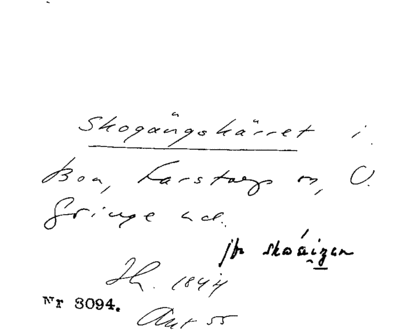 Skogängskärret i.
Boa, Karstorp m, V.
Gringe hd.
jfr skoäizen
Th. 1844
Nr 3094.
Ant 55